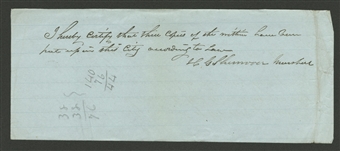 I hereby certify that three copies of the within have been
put up in this City according to law
Marshal
140
76
44